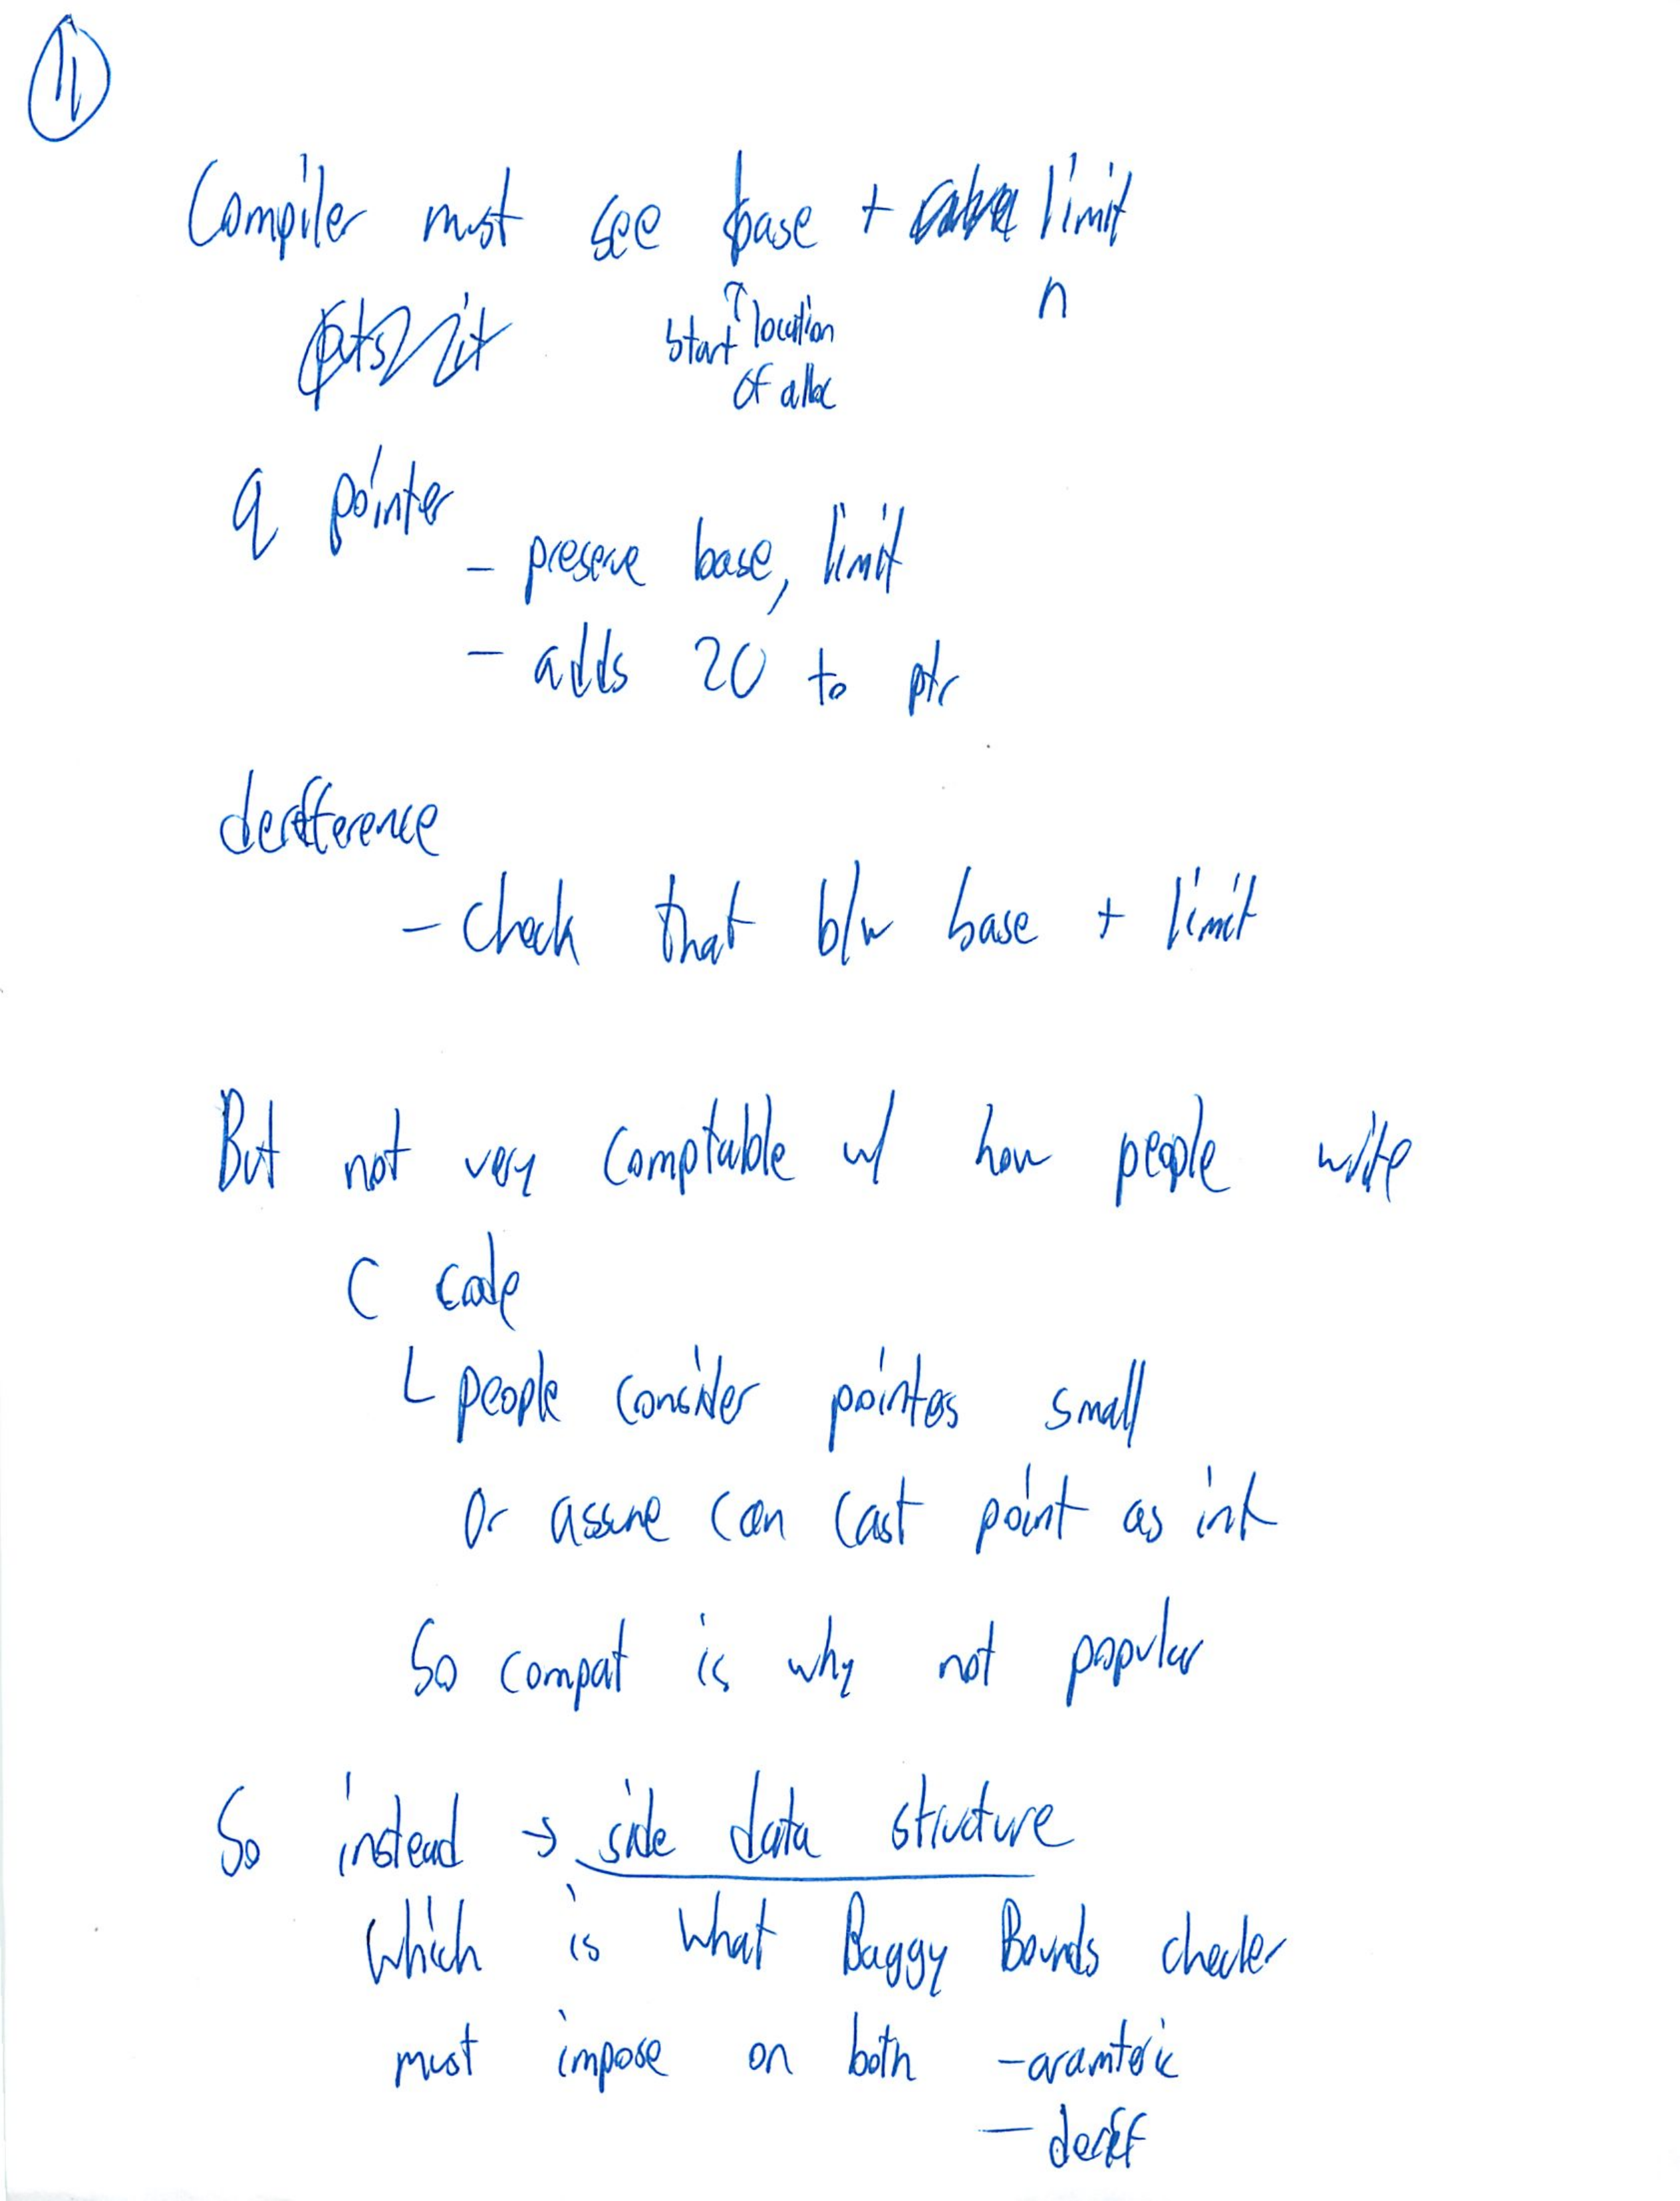 11
Compiler must see base + limit
↑ n
start location
of alloc
q pointer
- preserve base, limit
- adds 20 to ptr
derefference
- check that b/w base + limit
But not very comptable w/ how people write
C code
L people consider pointers small
or assume can cast point as int
So compat is why not popular
So instead → side data structure
Which is what Baggy Bounds checker
must impose on both - aramteric
- dereff